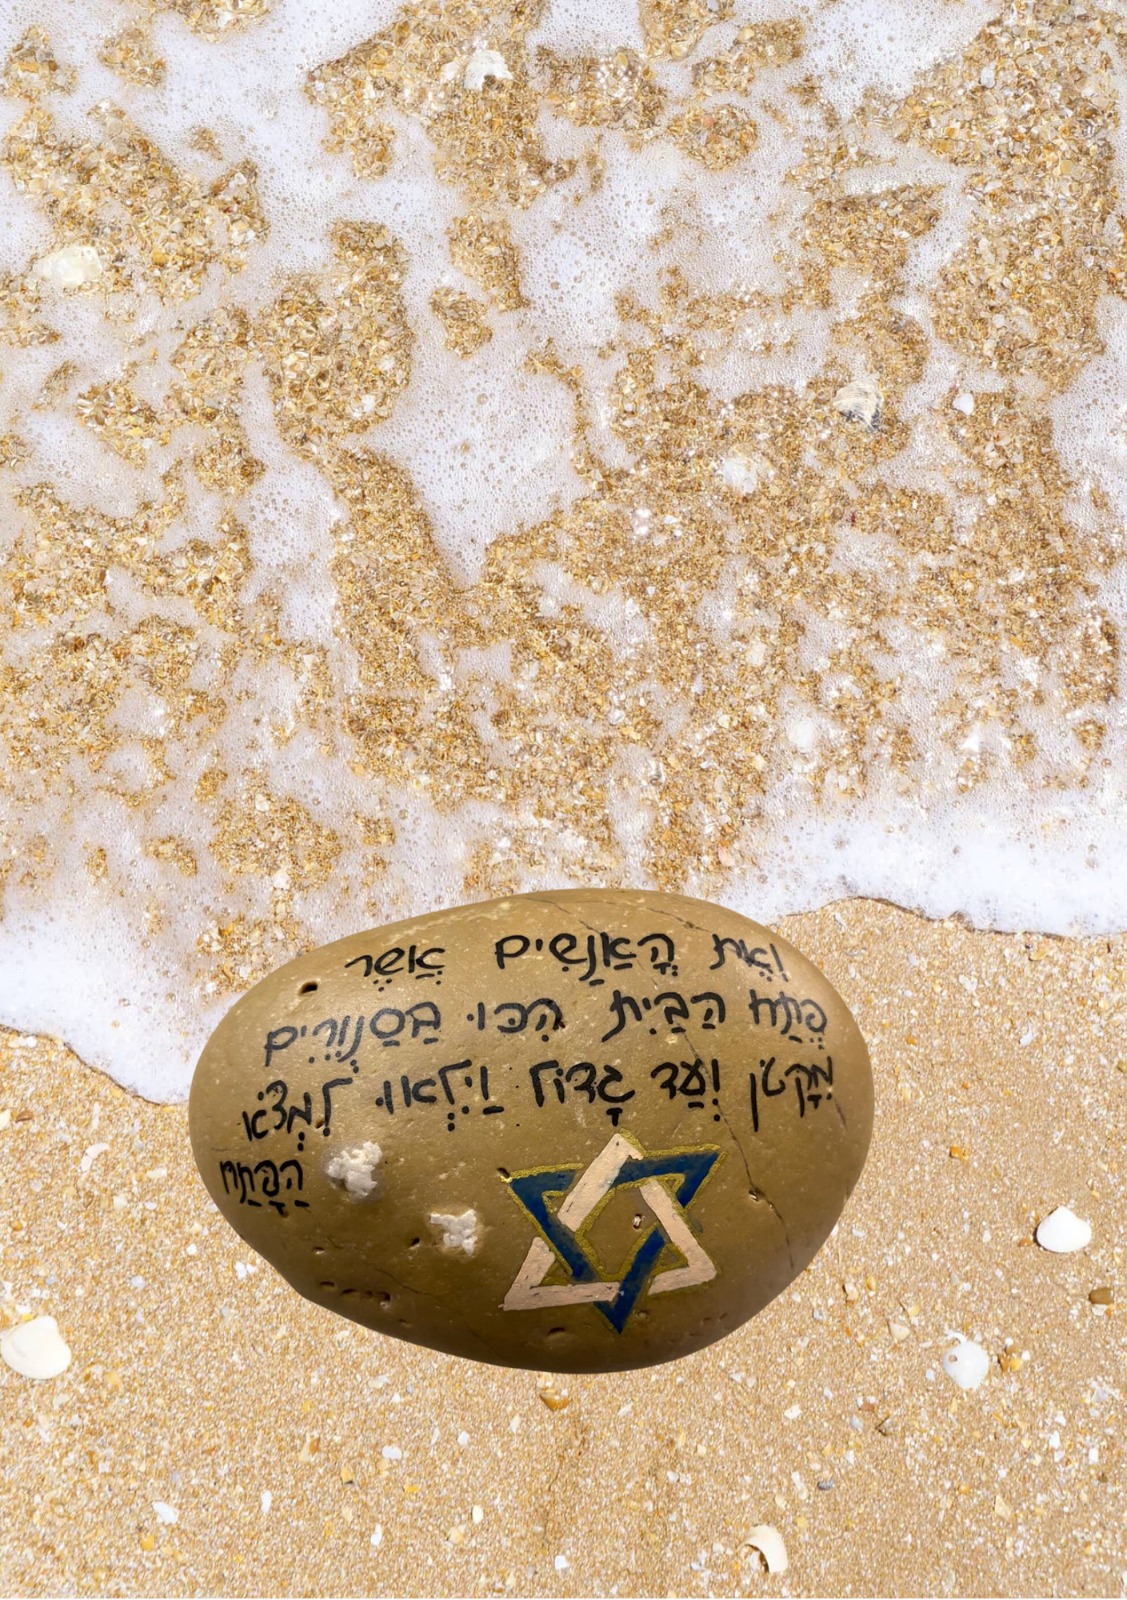 וְאֶת הָאֲנָשִׁים אֲשֶׁר
פֶּתַח הַבַּיִת הִכּוּ בַּסַּנְוֵרִים
מִקָּטֹן וְעַד גָּדוֹל וַיִּלְאוּ לִמְצֹא
הַפָּתַח